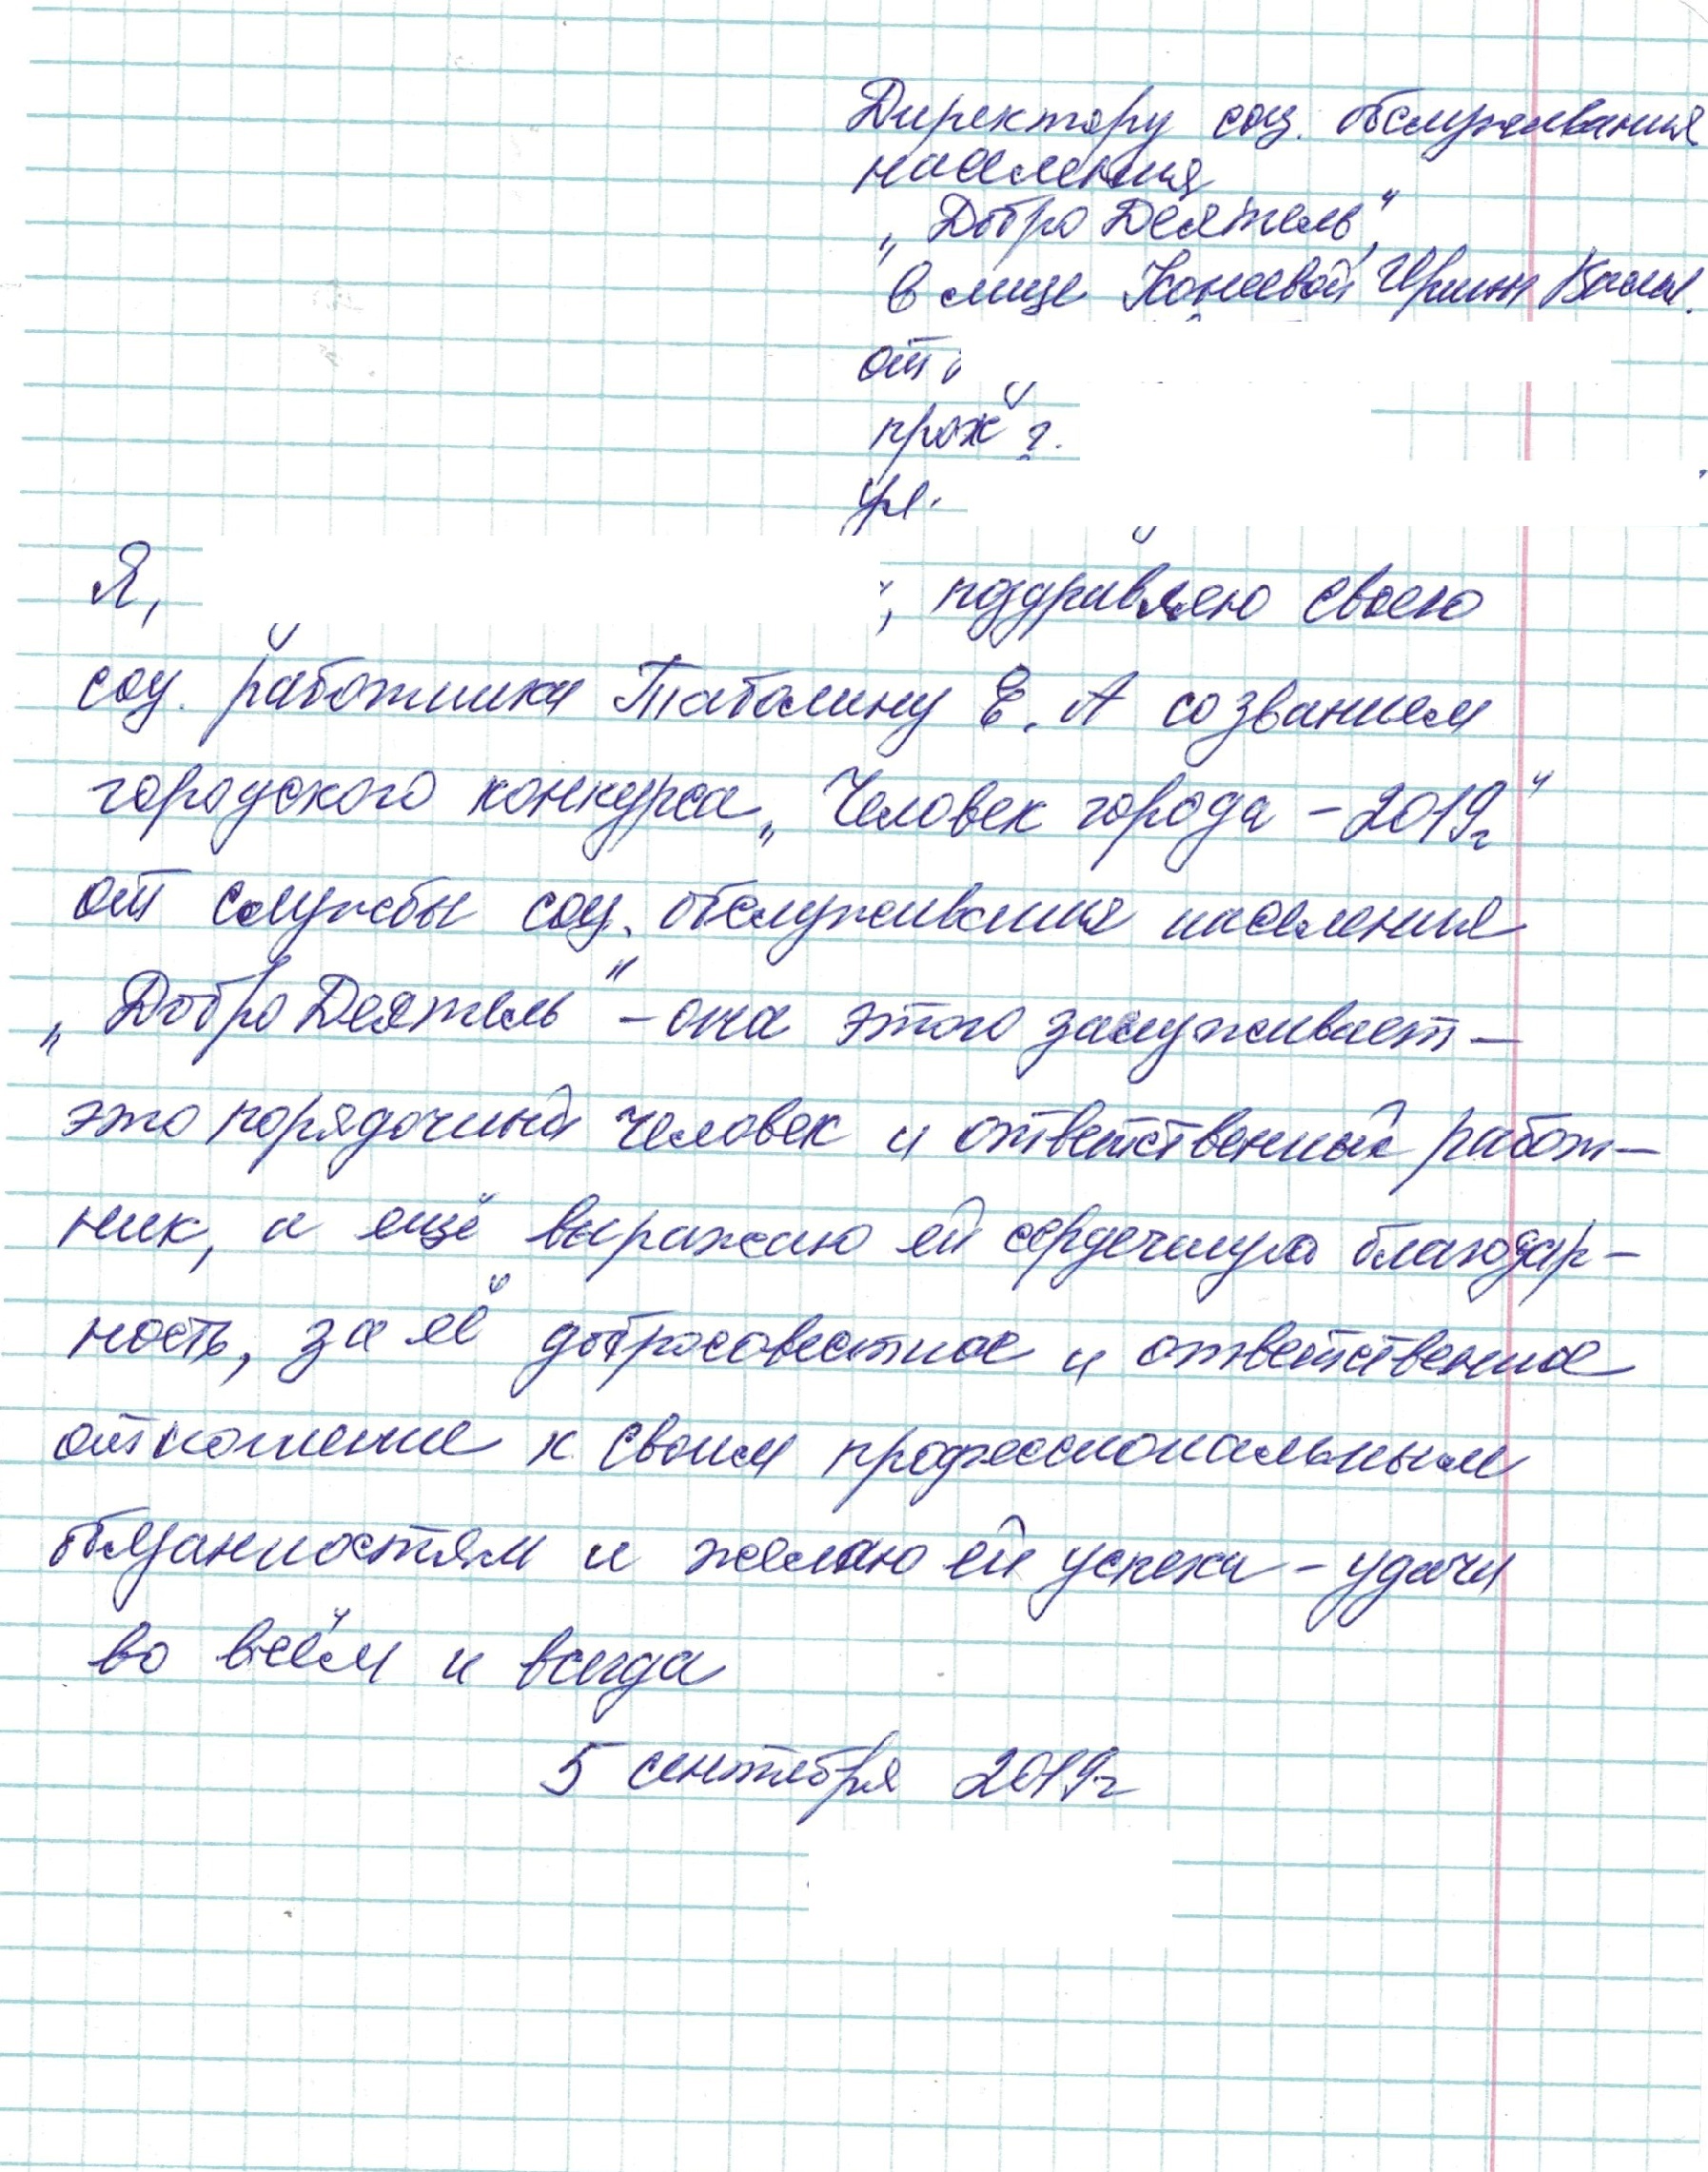 Директору соц. обслуживания
населения
„Добро Деятель"
в лице Конеевой Ирины Васил.
от
прож г.
ул.
Я, , поздравляю свого
соц. работника Таболину Е. А со званием
городского конкурса „Человек города - 2019г"
от службы соц. обслуживания населения
„Добро Деятель" - она этого заслуживает -
это порядочный человек и ответственный работ-
ник, и ещё выражаю ей сердечную благодар-
ность, за её добросовестное и ответственное
отношение к своим профессиональным
обязанностям и желаю ей успеха - удачи
во всём и всегда
5 сентября 2019г